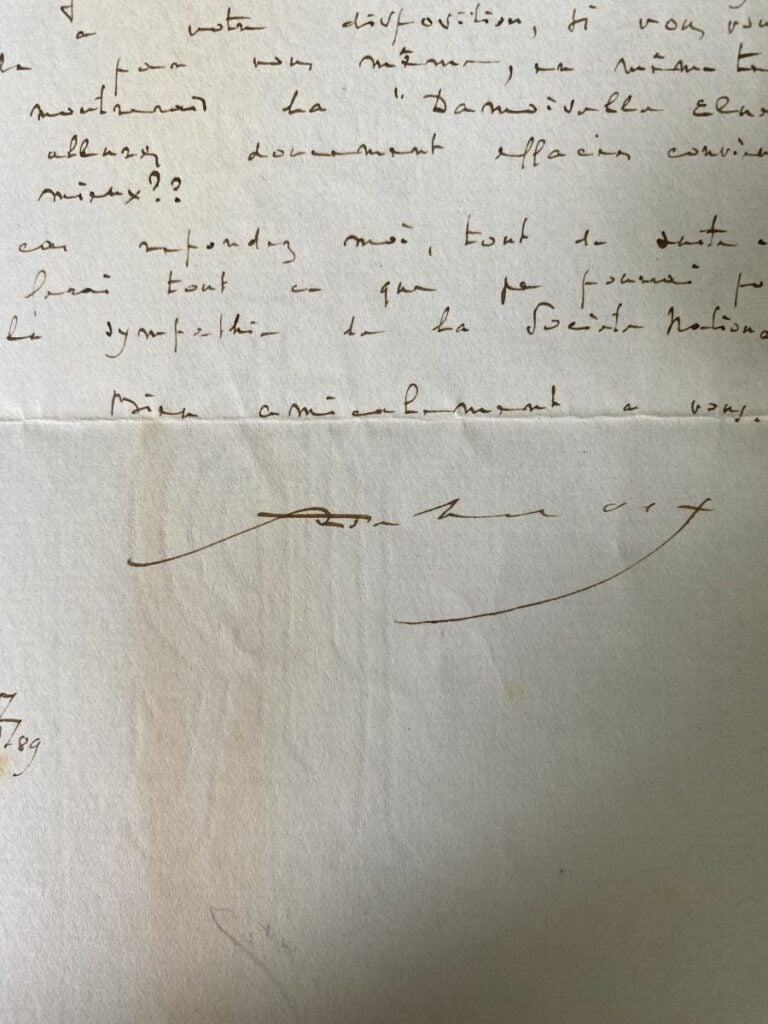 a votre disposition, si vous vou
la pour vous même, en même te
montrerais la "Damoiselle Elue
allures doucement effacées convien
mieux??
cas repondez moi, tout de suite
ferai tout ce que je pourrai po
la sympathie de la Societe Nationa
Bien amicalement a vous.
89